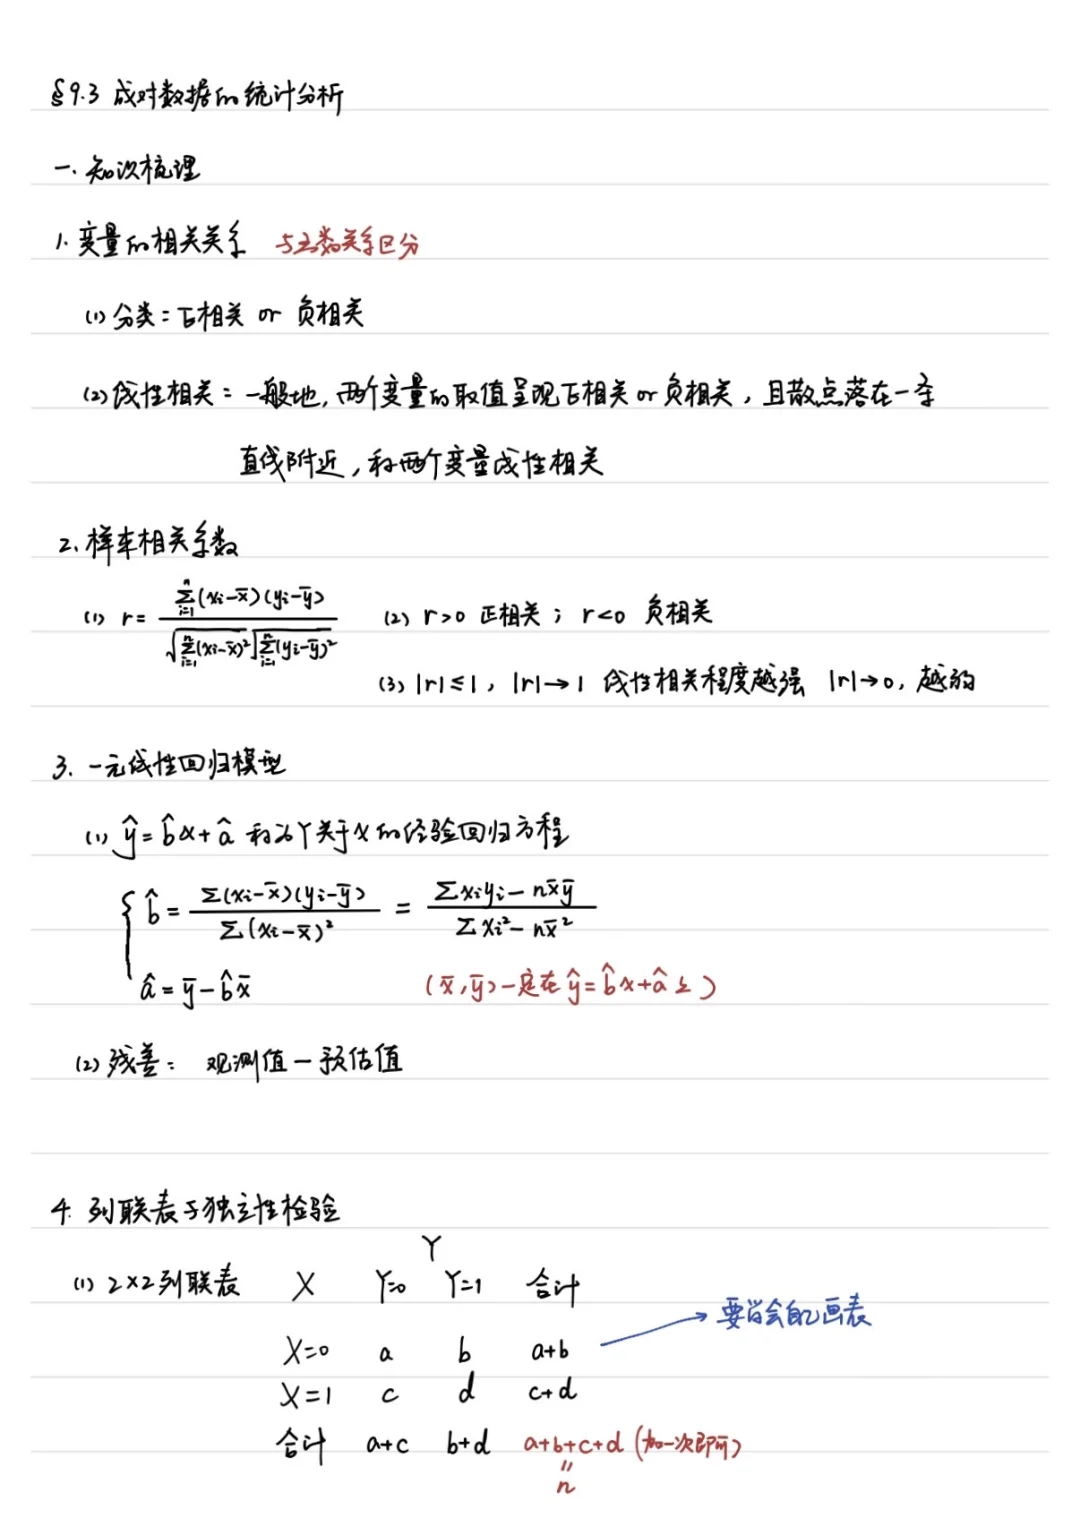 §9.3 成对数据的统计分析
一. 知识梳理
1. 变量的相关关系 与函数关系区分
(1) 分类：正相关 or 负相关
(2) 线性相关：一般地，两个变量的取值呈现正相关 or 负相关，且散点落在一条
直线附近，称两个变量线性相关
2. 样本相关系数
(1) r = \frac{\sum_{i=1}^{n}(x_i-\bar{x})(y_i-\bar{y})}{\sqrt{\sum_{i=1}^{n}(x_i-\bar{x})^2}\sqrt{\sum_{i=1}^{n}(y_i-\bar{y})^2}} (2) r>0 正相关；r<0 负相关
(3) |r|≤1，|r|→1 线性相关程度越强 |r|→0，越弱
3. 一元线性回归模型
(1) ŷ=b̂x+â 称为Y关于x的经验回归方程
b̂ = \frac{\sum(x_i-\bar{x})(y_i-\bar{y})}{\sum(x_i-\bar{x})^2} = \frac{\sum x_iy_i-n\bar{x}\bar{y}}{\sum x_i^2-n\bar{x}^2}
â = ȳ-b̂x̄ (x̄,ȳ)一定在ŷ=b̂x+â上)
(2) 残差：观测值-预估值
4. 列联表与独立性检验
Y
(1) 2×2列联表 X Y=0 Y=1 合计
要学会自己画表
X=0 a b a+b
X=1 c d c+d
合计 a+c b+d a+b+c+d (加一次即可)
=
n